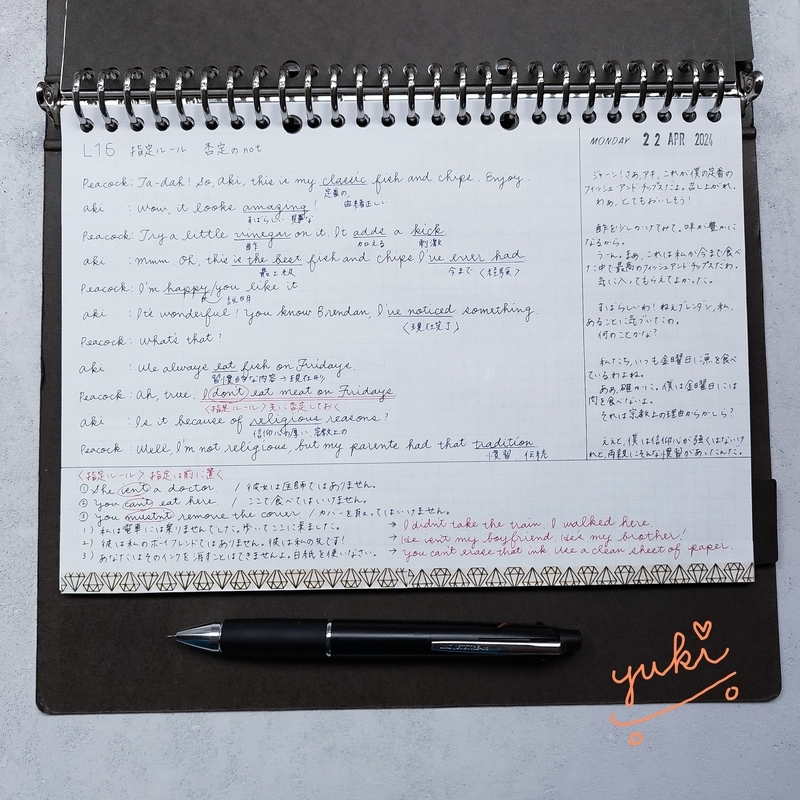 L16 指定ルール 否定のnot
MONDAY 22 APR 2024
Peacock: Ta-dah! So, Aki, this is my classic fish and chips. Enjoy.
定番の、 由緒正しい
aki : Wow, it looks amazing!
すばらしい、見事な
Peacock: Try a little vinegar on it. It adds a kick
酢 加える 刺激
aki : mmm. OK, this is the best fish and chips I've ever had
最上級 今まで〈経験〉
Peacock: I'm happy you like it
aki : It's wonderful! You know Brendan, I've noticed something.
(現在完了)
Peacock: What's that?
aki : We always eat fish on Fridays.
習慣的な内容→現在形
Peacock: Ah, true. I don't eat meat on Fridays
〈指定ルール〉先に否定しておく
aki : Is it because of religious reasons?
信仰心の厚い、宗教上の
Peacock: Well, I'm not religious, but my parents had that tradition.
慣習 伝統
ジャーン!さあ、アキ、これが僕の定番の
フィッシュ・アンド・チップスだよ。召し上がれ。
わあ、とてもおいしそう!
酢を少しかけてみて。味が豊かに
なるから。
うーん。まあ、これは私が今まで食べ
た中で最高のフィッシュアンドチップスだわ。
気に入ってもらえてよかった。
すばらしいわ!ねえブレンダン、私、
あることに気づいたの。
何のことかな?
私たち、いつも金曜日に魚を食べ
ているわよね。
ああ、確かに。僕は金曜日には
肉を食べないな。
それは宗教上の理由からかしら?
ええと、僕は信仰心が強くはないけ
れど、両親にそんな慣習があったんだ。
〈指定ルール〉指定は前に置く
① She isn't a doctor. / 彼女は医師ではありません。
② You can't eat here. / ここで食べてはいけません。
③ You mustn't remove the cover / カバーを取ってはいけません。
1) 私は電車には乗りませんでした。歩いてここに来ました。 → I didn't take the train. I walked here.
2) 彼は私のボーイフレンドではありません。彼は私の兄です! → He isn't my boyfriend. He's my brother!
3) あなたはそのインクを消すことはできませんよ。白紙を使いなさい。 → You can't erase that ink. Use a clean sheet of paper.
yuki